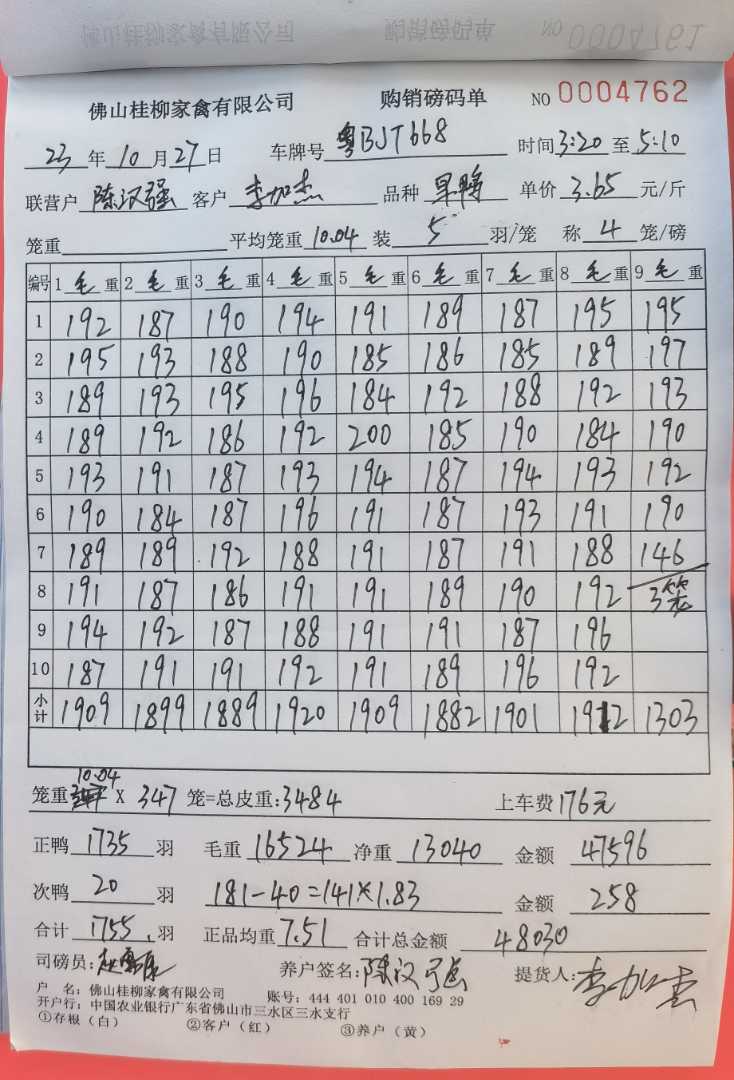 佛山桂柳家禽有限公司 购销磅码单 NO 0004762
23年10月27日 车牌号 粤BJT668 时间3:20至5:10
联营户 陈汉强 客户 李加杰 品种 旱鸭 单价 3.65 元/斤
笼重 平均笼重 10.04 装 5 羽/笼 称 4 笼/磅
编号 1 毛 重 2 毛 重 3 毛 重 4 毛 重 5 毛 重 6 毛 重 7 毛 重 8 毛 重 9 毛 重
1 192 187 190 194 191 189 187 195 195
2 195 193 188 190 185 186 185 189 197
3 189 193 195 196 184 192 188 192 193
4 189 192 186 192 200 185 190 184 190
5 193 191 187 193 194 187 194 193 192
6 190 184 187 196 191 187 193 191 190
7 189 189 192 188 191 187 191 188 146
8 191 187 186 191 191 189 190 192 3笼
9 194 192 187 188 191 191 187 196
10 187 191 191 192 191 189 196 192
小计 1909 1899 1889 1920 1909 1882 1901 1912 1303
笼重 10.04 X 347 笼=总皮重:3484 上车费 176元
正鸭 1735 羽 毛重 16524 净重 13040 金额 47596
次鸭 20 羽 181-40=141×1.83 金额 258
合计 1755 羽 正品均重 7.51 合计总金额 48030
司磅员: 养户签名:陈汉强 提货人:李加杰
户 名:佛山桂柳家禽有限公司 账号:444 401 010 400 169 29
开户行:中国农业银行广东省佛山市三水区三水支行
①存根(白) ②客户(红) ③养户(黄)